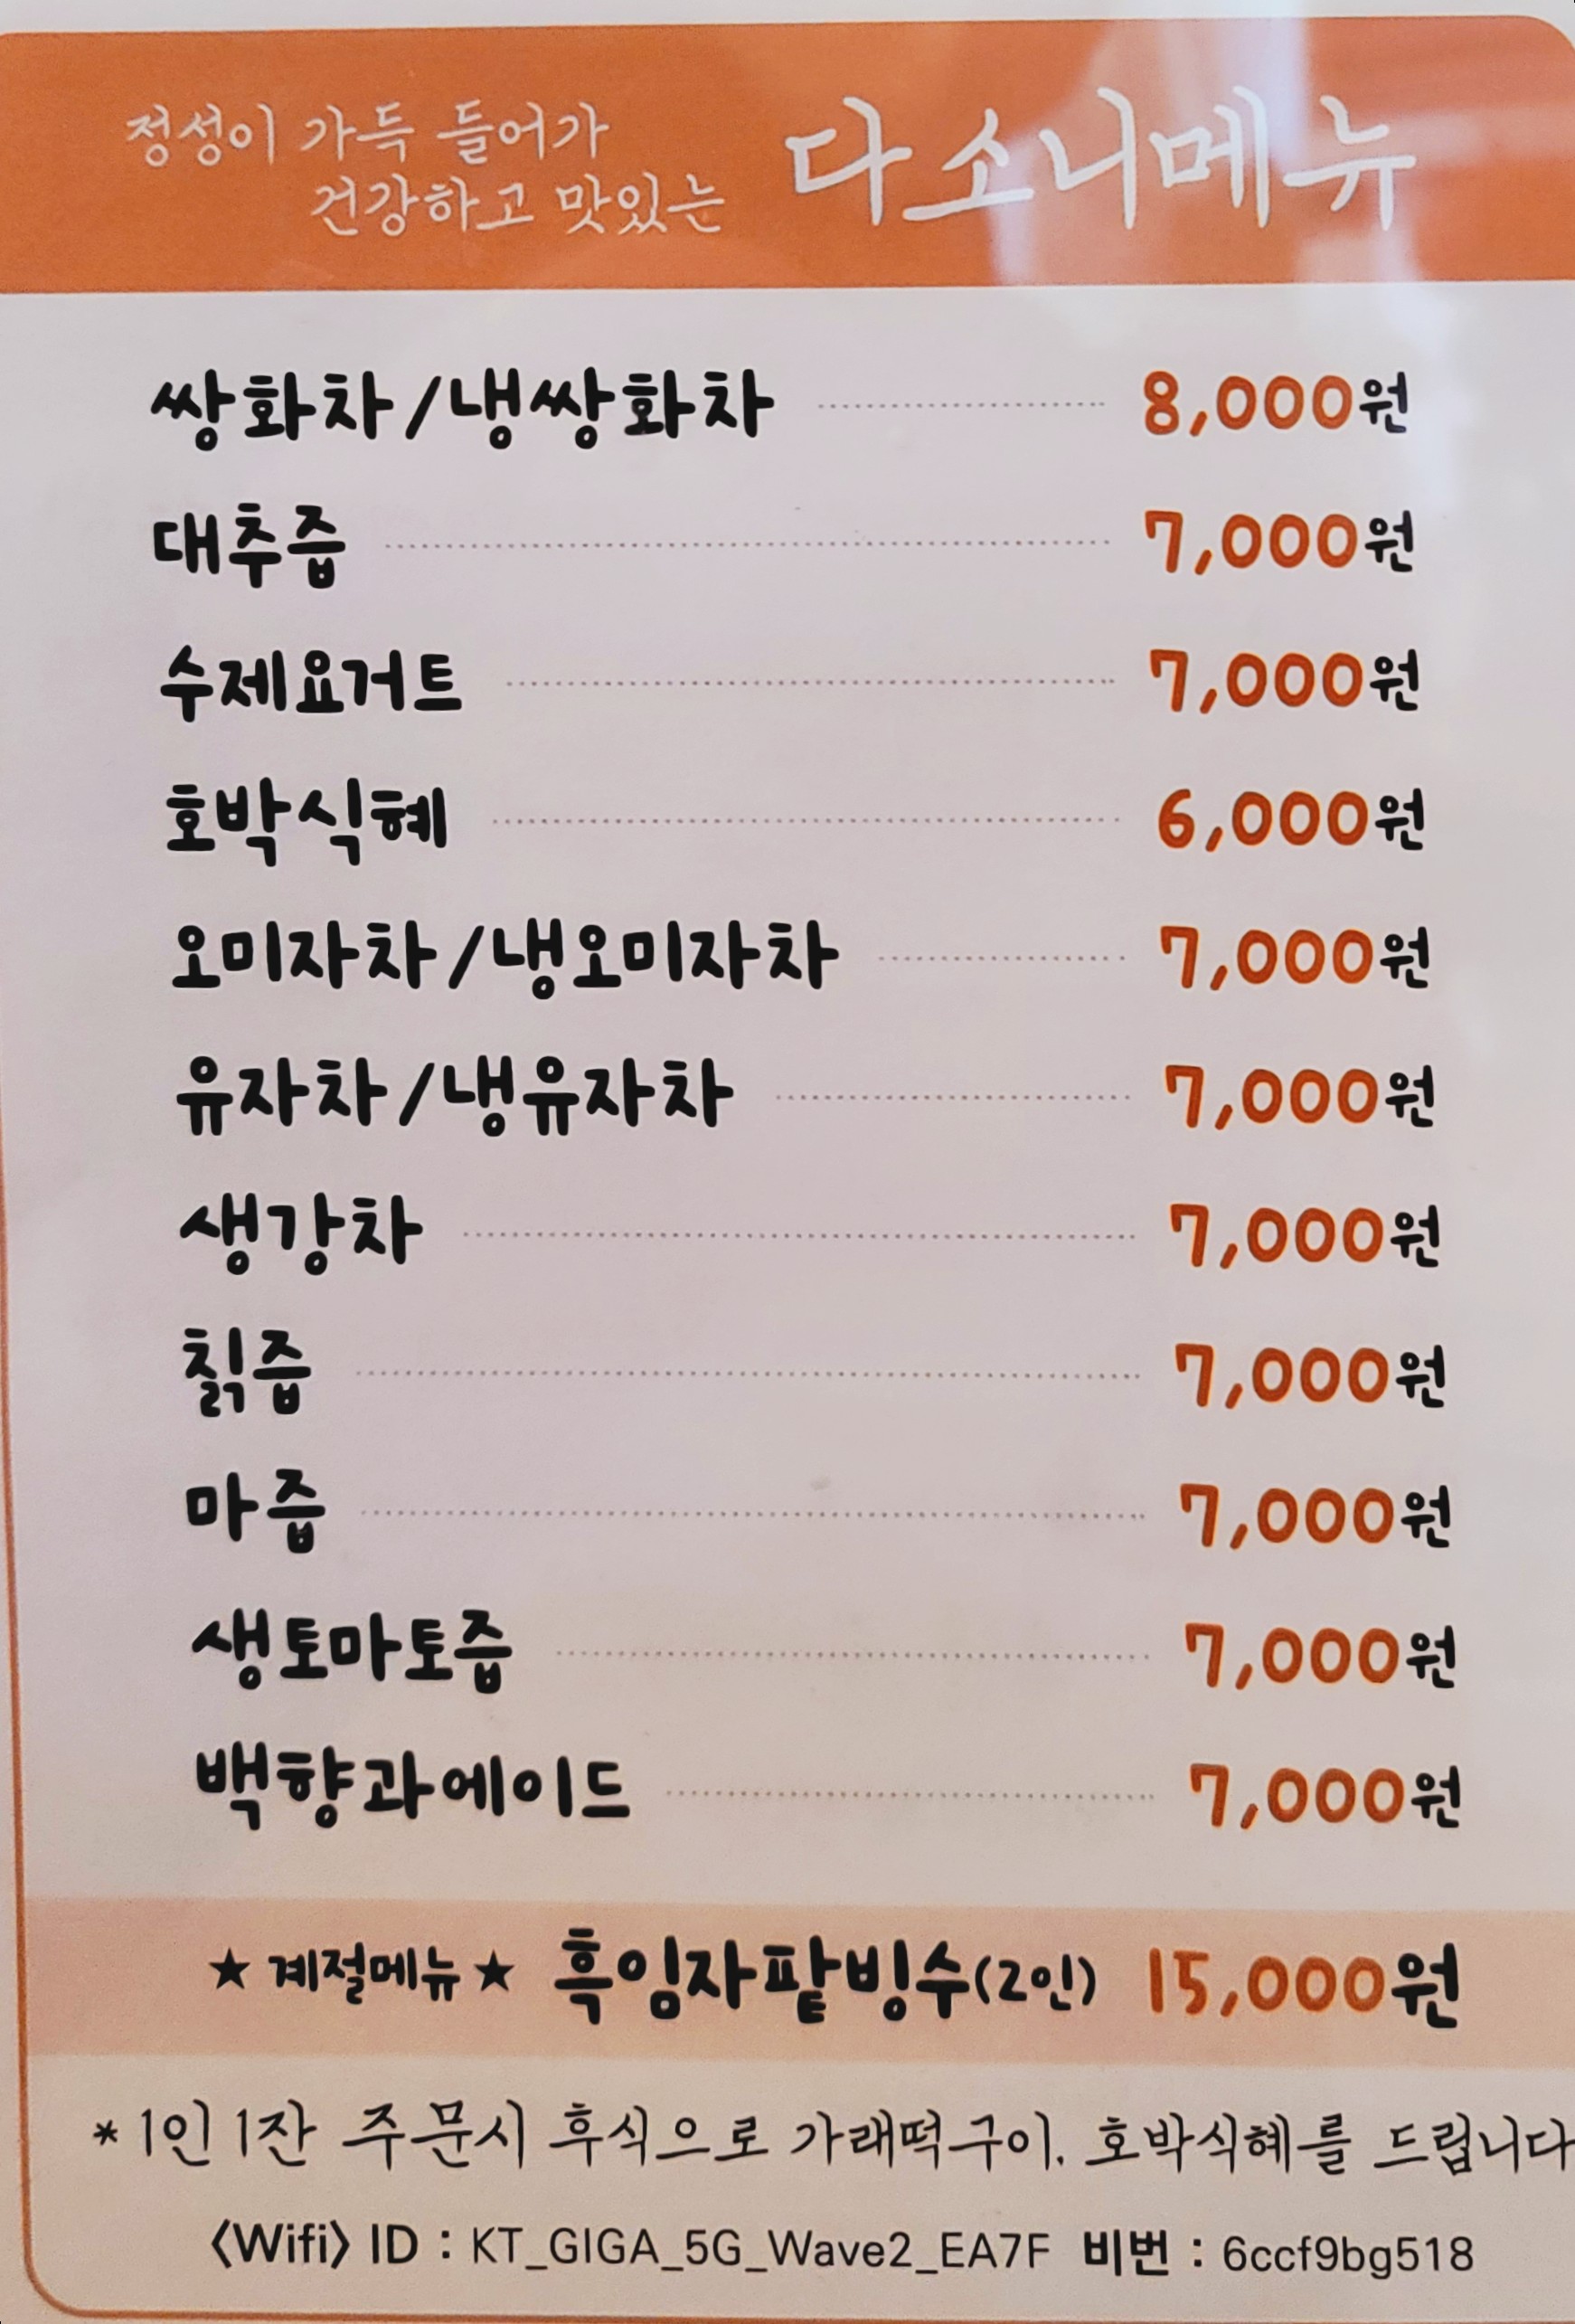 정성이 가득 들어가
건강하고 맛있는
다소니메뉴
쌍화차/냉쌍화차 8,000원
대추즙 7,000원
수제요거트 7,000원
호박식혜 6,000원
오미자차/냉오미자차 7,000원
유자차/냉유자차 7,000원
생강차 7,000원
칡즙 7,000원
마즙 7,000원
생토마토즙 7,000원
백향과에이드 7,000원
★계절메뉴★ 흑임자팥빙수(2인) 15,000원
*1인 1잔 주문시 후식으로 가래떡구이, 호박식혜를 드립니다
<Wifi> ID : KT_GIGA_5G_Wave2_EA7F 비번 : 6ccf9bg518